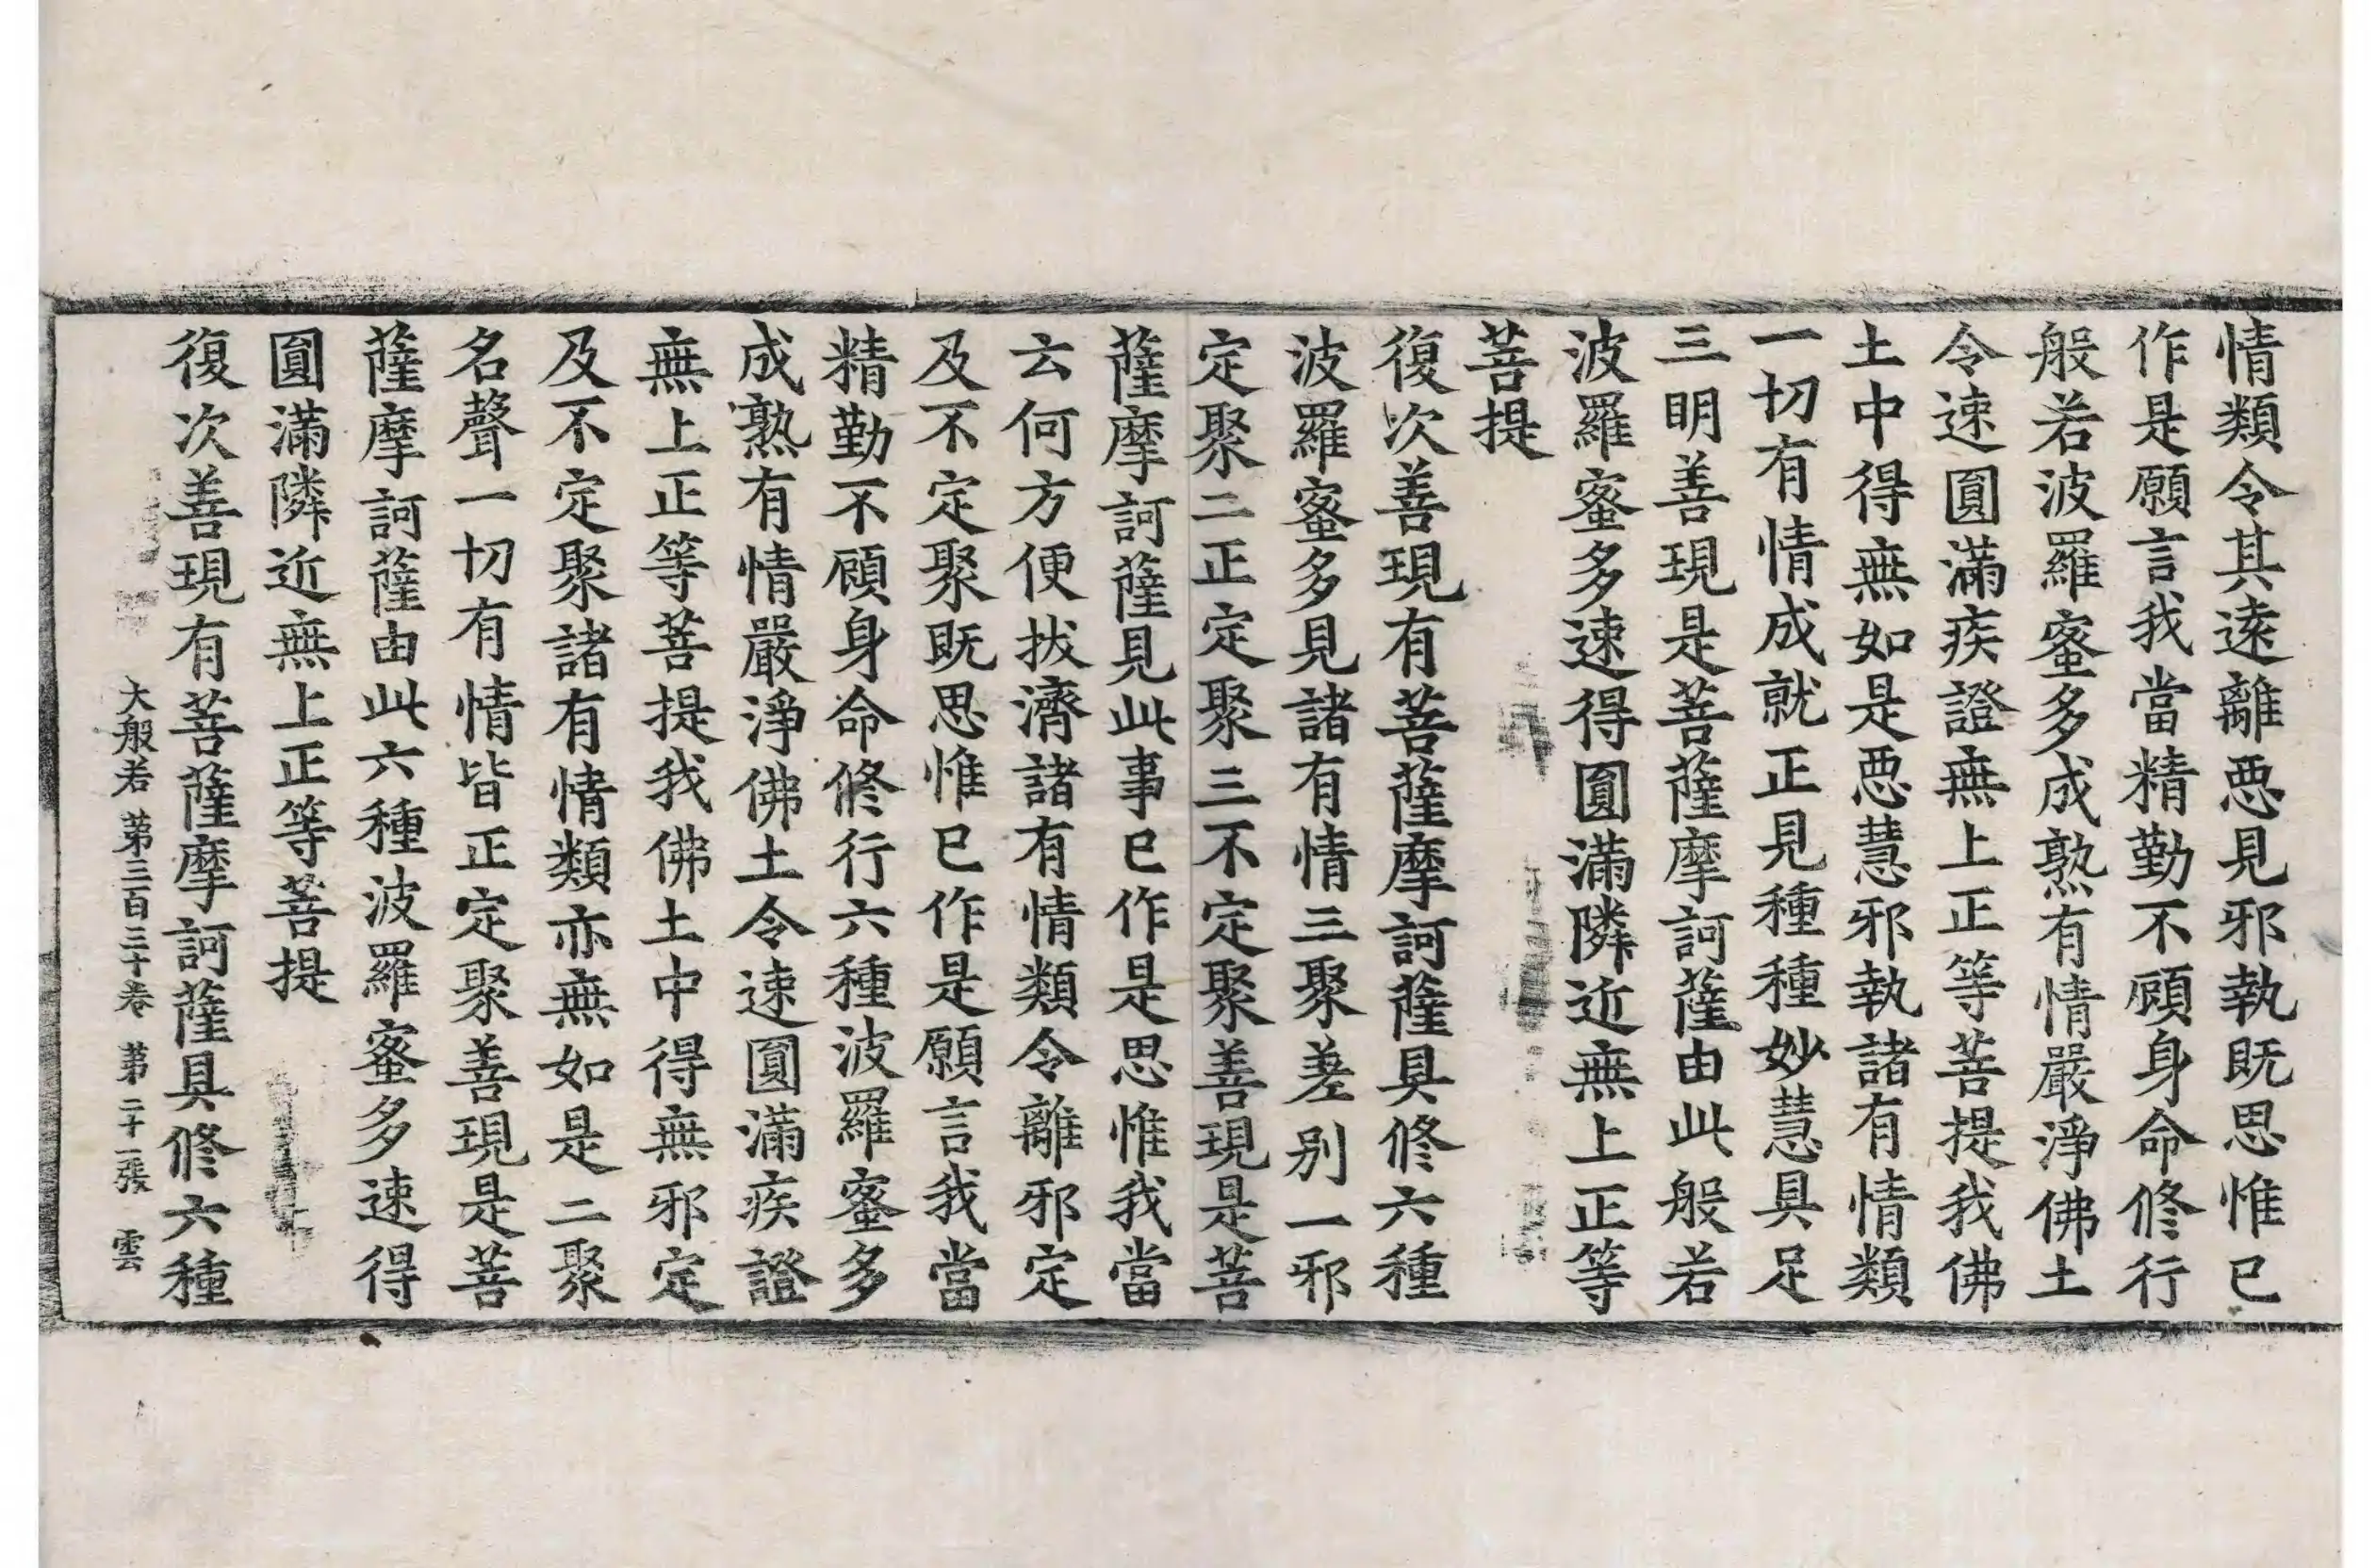 情類令其遠離惡見邪執既思惟已
作是願言我當精勤不顧身命修行
般若波羅蜜多成熟有情嚴淨佛土
令速圓滿疾證無上正等菩提我佛
土中得無如是惡慧邪執諸有情類
一切有情成就正見種種妙慧具足
三明善現是菩薩摩訶薩由此般若
波羅蜜多速得圓滿隣近無上正等
菩提
復次善現有菩薩摩訶薩具修六種
波羅蜜多見諸有情三聚差別一邪
定聚二正定聚三不定聚善現是菩
薩摩訶薩見此事已作是思惟我當
云何方便拔濟諸有情類令離邪定
及不定聚既思惟已作是願言我當
精勤不顧身命修行六種波羅蜜多
成熟有情嚴淨佛土令速圓滿疾證
無上正等菩提我佛土中得無邪定
及不定聚諸有情類亦無如是二聚
名聲一切有情皆正定聚善現是菩
薩摩訶薩由此六種波羅蜜多速得
圓滿隣近無上正等菩提
復次善現有菩薩摩訶薩具修六種
大般若 第三百三十卷 第二十一張 雲